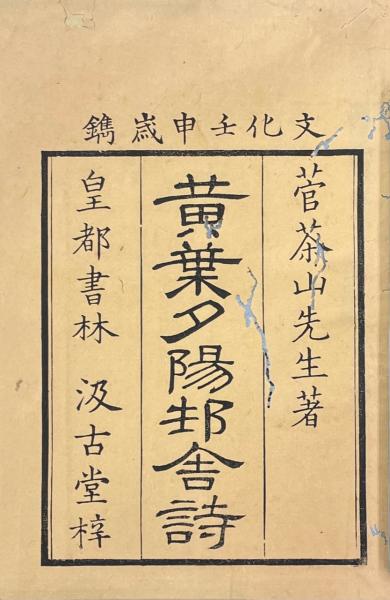 文化壬申歳鐫
菅茶山先生著
黄葉夕陽邨舎詩
皇都書林 汲古堂梓